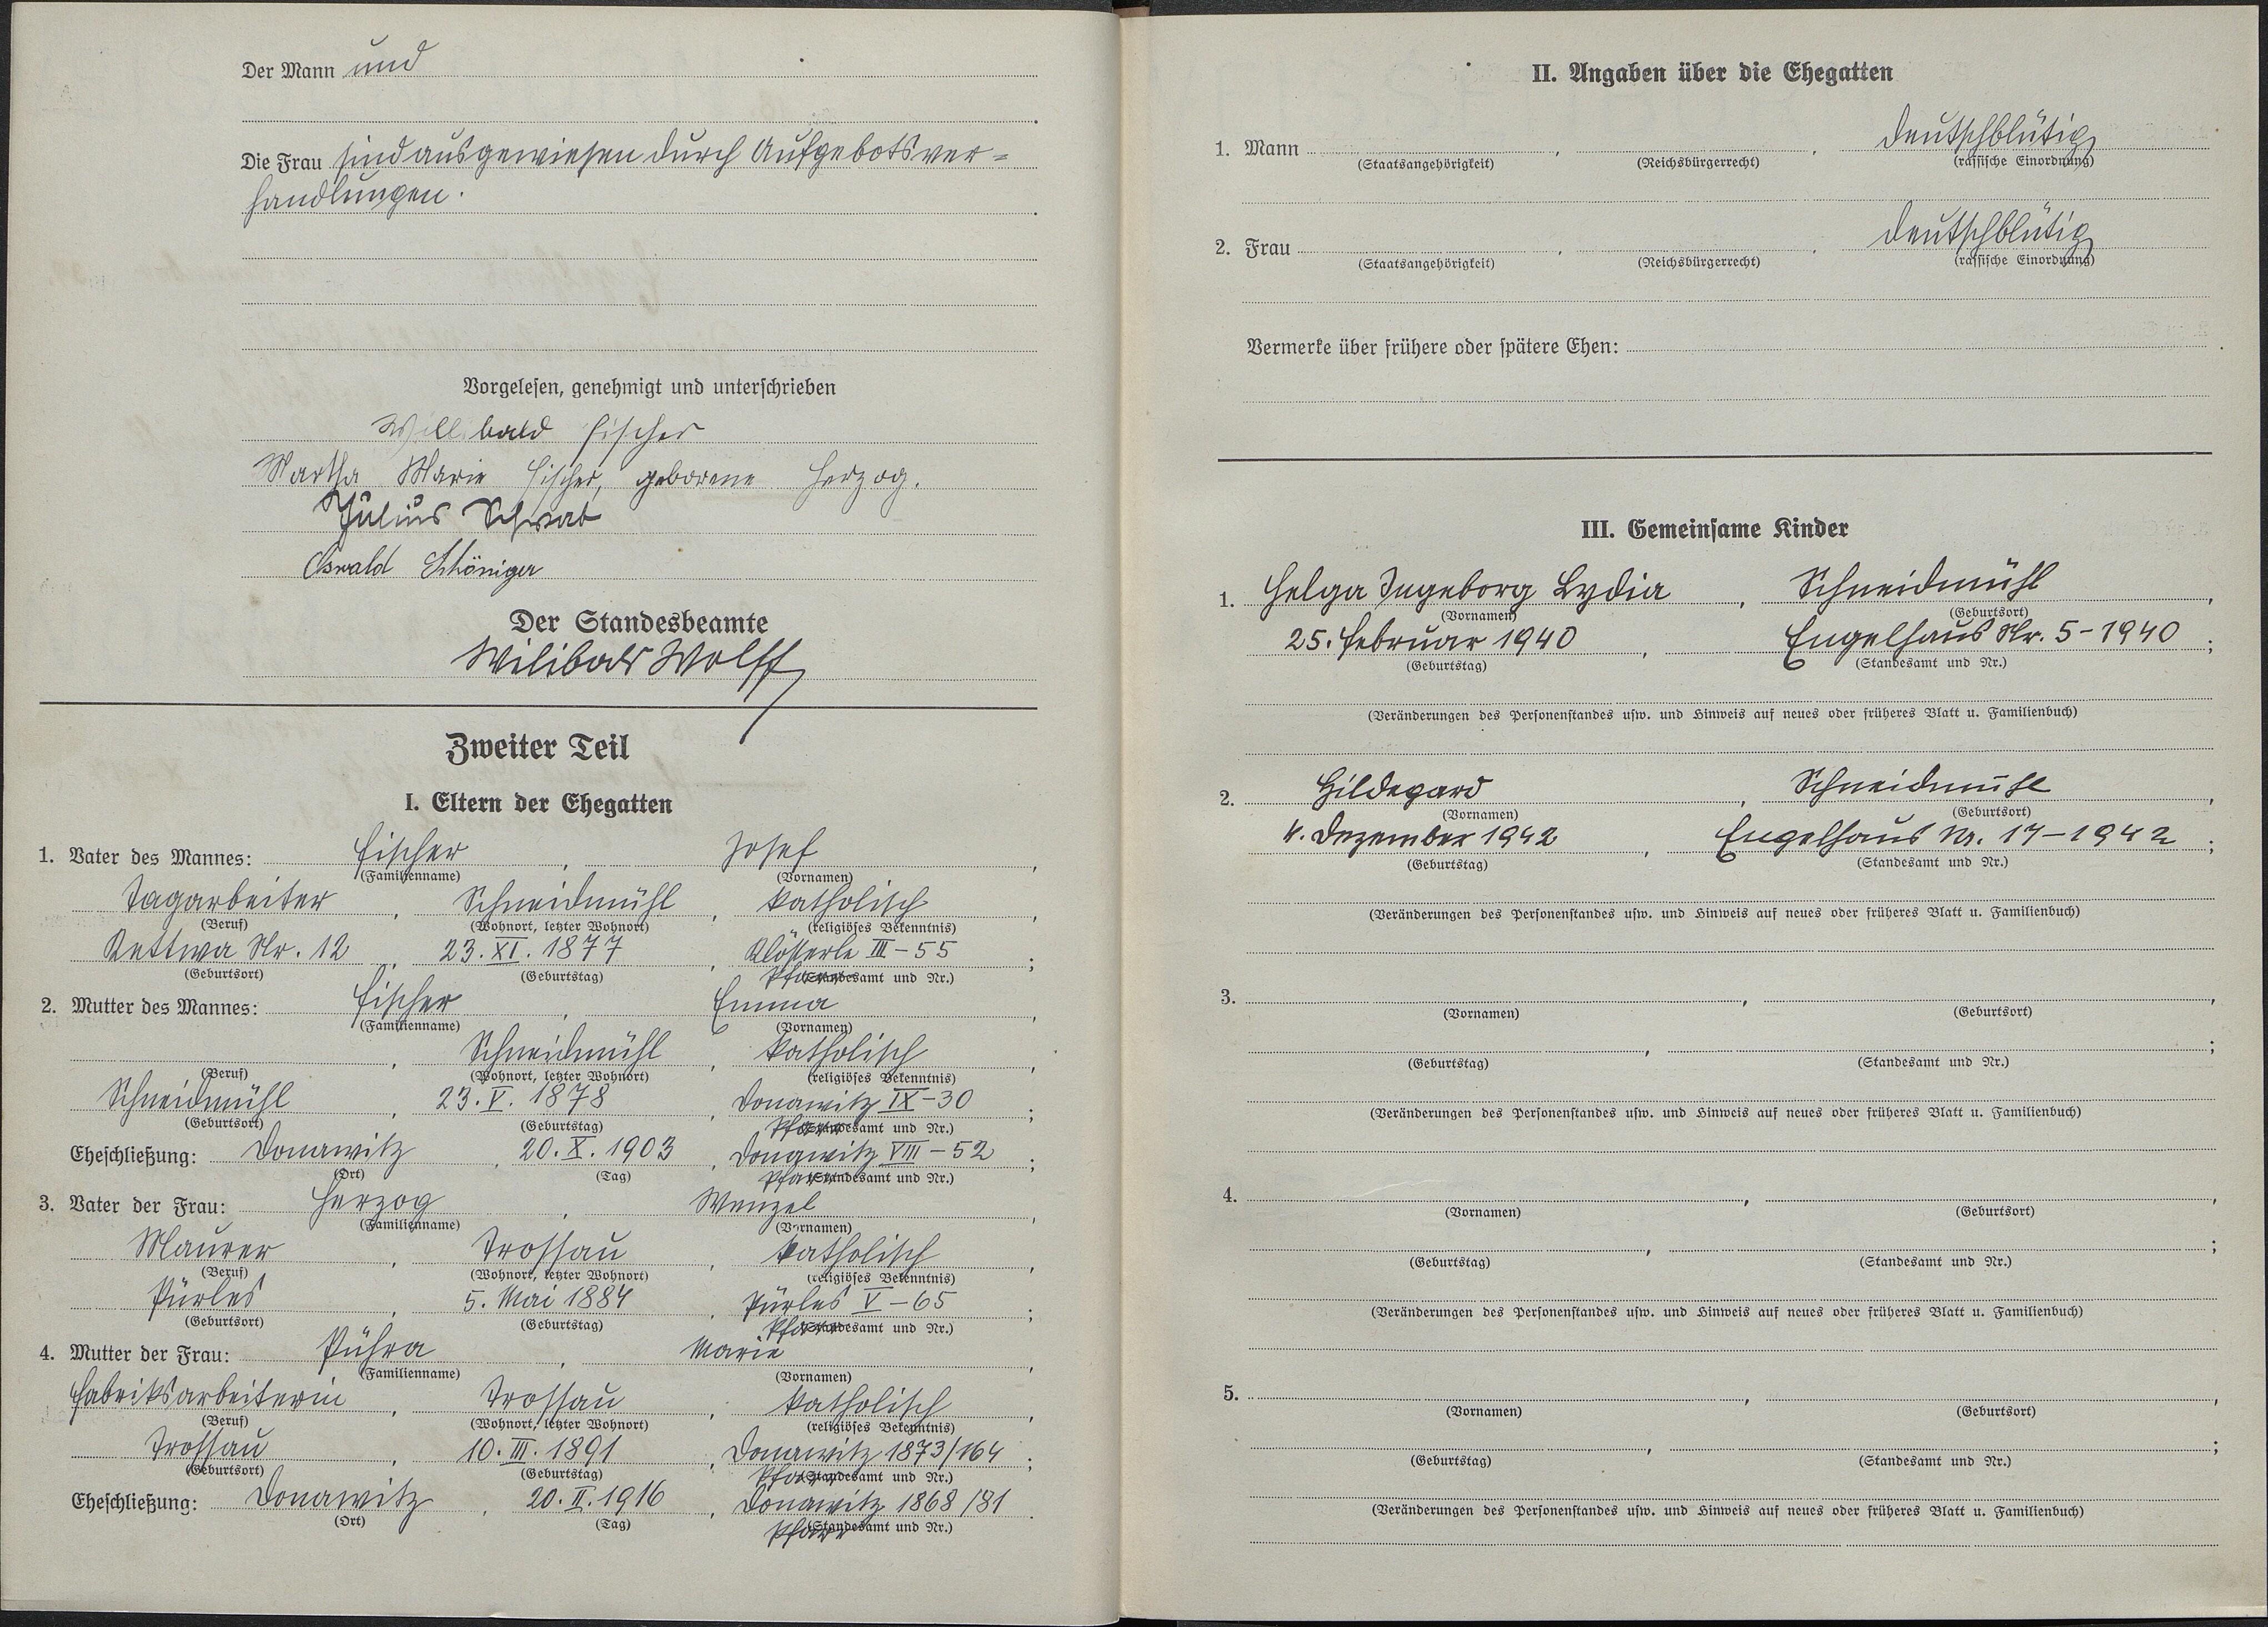 Der Mann und
Die Frau sind ausgewiesen durch Aufgebotsver-
handlungen.
Vorgelesen, genehmigt und unterschrieben
Willibald Fischer
Martha Marie Fischer, geborene Herzog.
Julius Schwab
Oswald Schöniger
Der Standesbeamte
Wilibald Wolff
Zweiter Teil
I. Eltern der Ehegatten
1. Vater des Mannes: Fischer, Josef,
(Familienname) (Vornamen)
Tagarbeiter, Schneidmühl, katholisch,
(Beruf) (Wohnort, letzter Wohnort) (religiöses Bekenntnis)
Kettwa Nr. 12, 23. XI. 1877, Klösterle III-55;
(Geburtsort) (Geburtstag) Pfarr (Standesamt und Nr.)
2. Mutter des Mannes: Fischer, Emma,
(Familienname) (Vornamen)
, Schneidmühl, katholisch,
(Beruf) (Wohnort, letzter Wohnort) (religiöses Bekenntnis)
Schneidmühl, 23. V. 1878, Donawitz IX-30;
(Geburtsort) (Geburtstag) Pfarr (Standesamt und Nr.)
Eheschließung: Donawitz, 20. X. 1903, Donawitz VIII-52;
(Ort) (Tag) Pfarr (Standesamt und Nr.)
3. Vater der Frau: Herzog, Wenzel,
(Familienname) (Vornamen)
Maurer, Trossau, katholisch,
(Beruf) (Wohnort, letzter Wohnort) (religiöses Bekenntnis)
Pürles, 5. Mai 1884, Pürles V-65;
(Geburtsort) (Geburtstag) Pfarr (Standesamt und Nr.)
4. Mutter der Frau: Pühra, Marie,
(Familienname) (Vornamen)
Fabriksarbeiterin, Trossau, katholisch,
(Beruf) (Wohnort, letzter Wohnort) (religiöses Bekenntnis)
Trossau, 10. III. 1891, Donawitz 1873/164;
(Geburtsort) (Geburtstag) Pfarr (Standesamt und Nr.)
Eheschließung: Donawitz, 20. II. 1916, Donawitz 1868/81.
(Ort) (Tag) Pfarr (Standesamt und Nr.)
II. Angaben über die Ehegatten
1. Mann , , deutschblütig
(Staatsangehörigkeit) (Reichsbürgerrecht) (rassische Einordnung)
2. Frau , , deutschblütig
(Staatsangehörigkeit) (Reichsbürgerrecht) (rassische Einordnung)
Vermerke über frühere oder spätere Ehen:
III. Gemeinsame Kinder
1. Helga Ingeborg Lydia, Schneidmühl,
(Vornamen) (Geburtsort)
25. Februar 1940, Engelhaus Nr. 5-1940;
(Geburtstag) (Standesamt und Nr.)
(Veränderungen des Personenstandes usw. und Hinweis auf neues oder früheres Blatt u. Familienbuch)
2. Hildegard, Schneidmühl,
(Vornamen) (Geburtsort)
4. Dezember 1942, Engelhaus Nr. 17-1942;
(Geburtstag) (Standesamt und Nr.)
(Veränderungen des Personenstandes usw. und Hinweis auf neues oder früheres Blatt u. Familienbuch)
3. , ,
(Vornamen) (Geburtsort)
, ;
(Geburtstag) (Standesamt und Nr.)
(Veränderungen des Personenstandes usw. und Hinweis auf neues oder früheres Blatt u. Familienbuch)
4. , ,
(Vornamen) (Geburtsort)
, ;
(Geburtstag) (Standesamt und Nr.)
(Veränderungen des Personenstandes usw. und Hinweis auf neues oder früheres Blatt u. Familienbuch)
5. , ,
(Vornamen) (Geburtsort)
, ;
(Geburtstag) (Standesamt und Nr.)
(Veränderungen des Personenstandes usw. und Hinweis auf neues oder früheres Blatt u. Familienbuch)